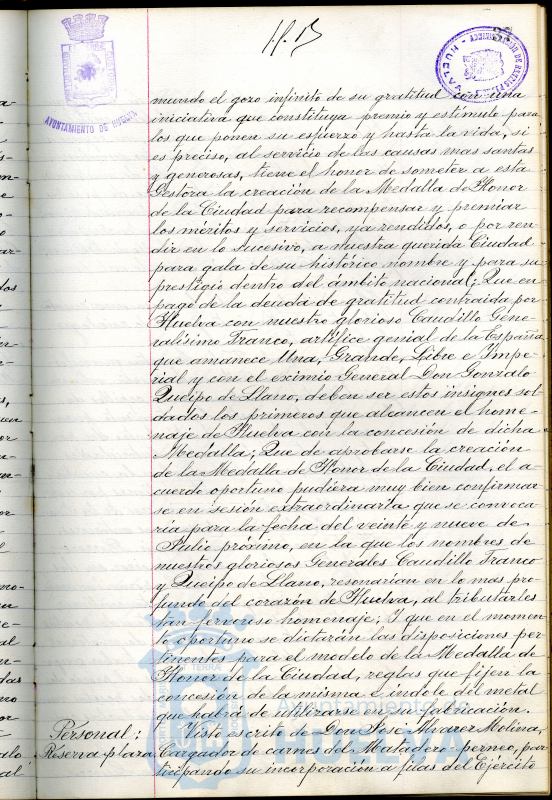 AYUNTAMIENTO DE HUELVA
mundo el gozo infinito de su gratitud con una
iniciativa que constituya premio y estímulo para
los que ponen su esfuerzo y hasta la vida, si
es preciso, al servicio de las causas mas santas
y generosas, tiene el honor de someter a esta
Gestora la creación de la Medalla de Honor
de la Ciudad para recompensar y premiar
los méritos y servicios, ya rendidos, o por ren-
dir en lo sucesivo, a nuestra querida Ciudad
para gala de su histórico nombre y para su
prestigio dentro del ámbito nacional; Que en
pago de la deuda de gratitud contraida por
Huelva con nuestro glorioso Caudillo Gene-
ralísimo Franco, artífice genial de la España
que amanece Una, Grande, Libre e Impe-
rial y con el eximio General Don Gonzalo
Queipo de Llano, deben ser estos insignes sol-
dados los primeros que alcancen el home-
naje de Huelva con la concesión de dicha
Medalla; Que de aprobarse la creación
de la Medalla de Honor de la Ciudad, el a-
cuerdo oportuno pudiera muy bien confirmar-
se en sesión extraordinaria que se convoca-
ría para la fecha del veinte y nueve de
Julio próximo, en la que los nombres de
nuestros gloriosos Generales Caudillo Franco
y Queipo de Llano, resonarian en lo mas pro-
fundo del corazón de Huelva, al tributarles
tan fervoroso homenaje; Y que en el momen-
to oportuno se dictarán las disposiciones per-
tinentes para el modelo de la Medalla de
Honor de la Ciudad, reglas que fijen la
concesión de la misma e indole del metal
que habrá de utilizarse en su fabricación.
Personal:
Reserva plaza
Visto escrito de Don José Alvarez Molina,
Cargador de carnes del Matadero perneo, par-
ticipando su incorporación a filas del Ejército
Ayuntamiento de
HUELVA